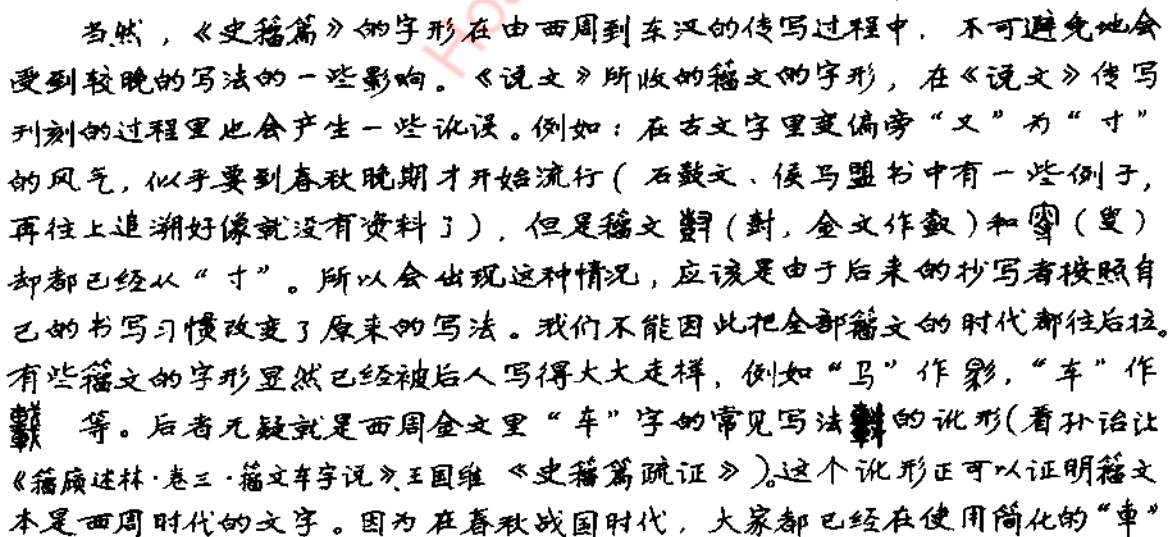 当然，《史籀篇》的字形在由西周到东汉的传写过程中，不可避免地会
受到较晚的写法的一些影响。《说文》所收的籀文的字形，在《说文》传写
刊刻的过程里也会产生一些讹误。例如：在古文字里变偏旁“又”为“寸”
的风气，似乎要到春秋晚期才开始流行（石鼓文、侯马盟书中有一些例子，
再往上追溯好像就没有资料了），但是籀文（尌，金文作㪇）和（叟）
却都已经从“寸”。所以会出现这种情况，应该是由于后来的抄写者按照自
己的书写习惯改变了原来的写法。我们不能因此把全部籀文的时代都往后拉。
有些籀文的字形显然已经被后人写得大大走样，例如“马”作影，“车”作
等。后者无疑就是西周金文里“车”字的常见写法的讹形（看孙诒让
《籀庼述林·卷三·籀文车字说》、王国维《史籀篇疏证》）。这个讹形正可以证明籀文
本是西周时代的文字。因为在春秋战国时代，大家都已经在使用简化的“車”